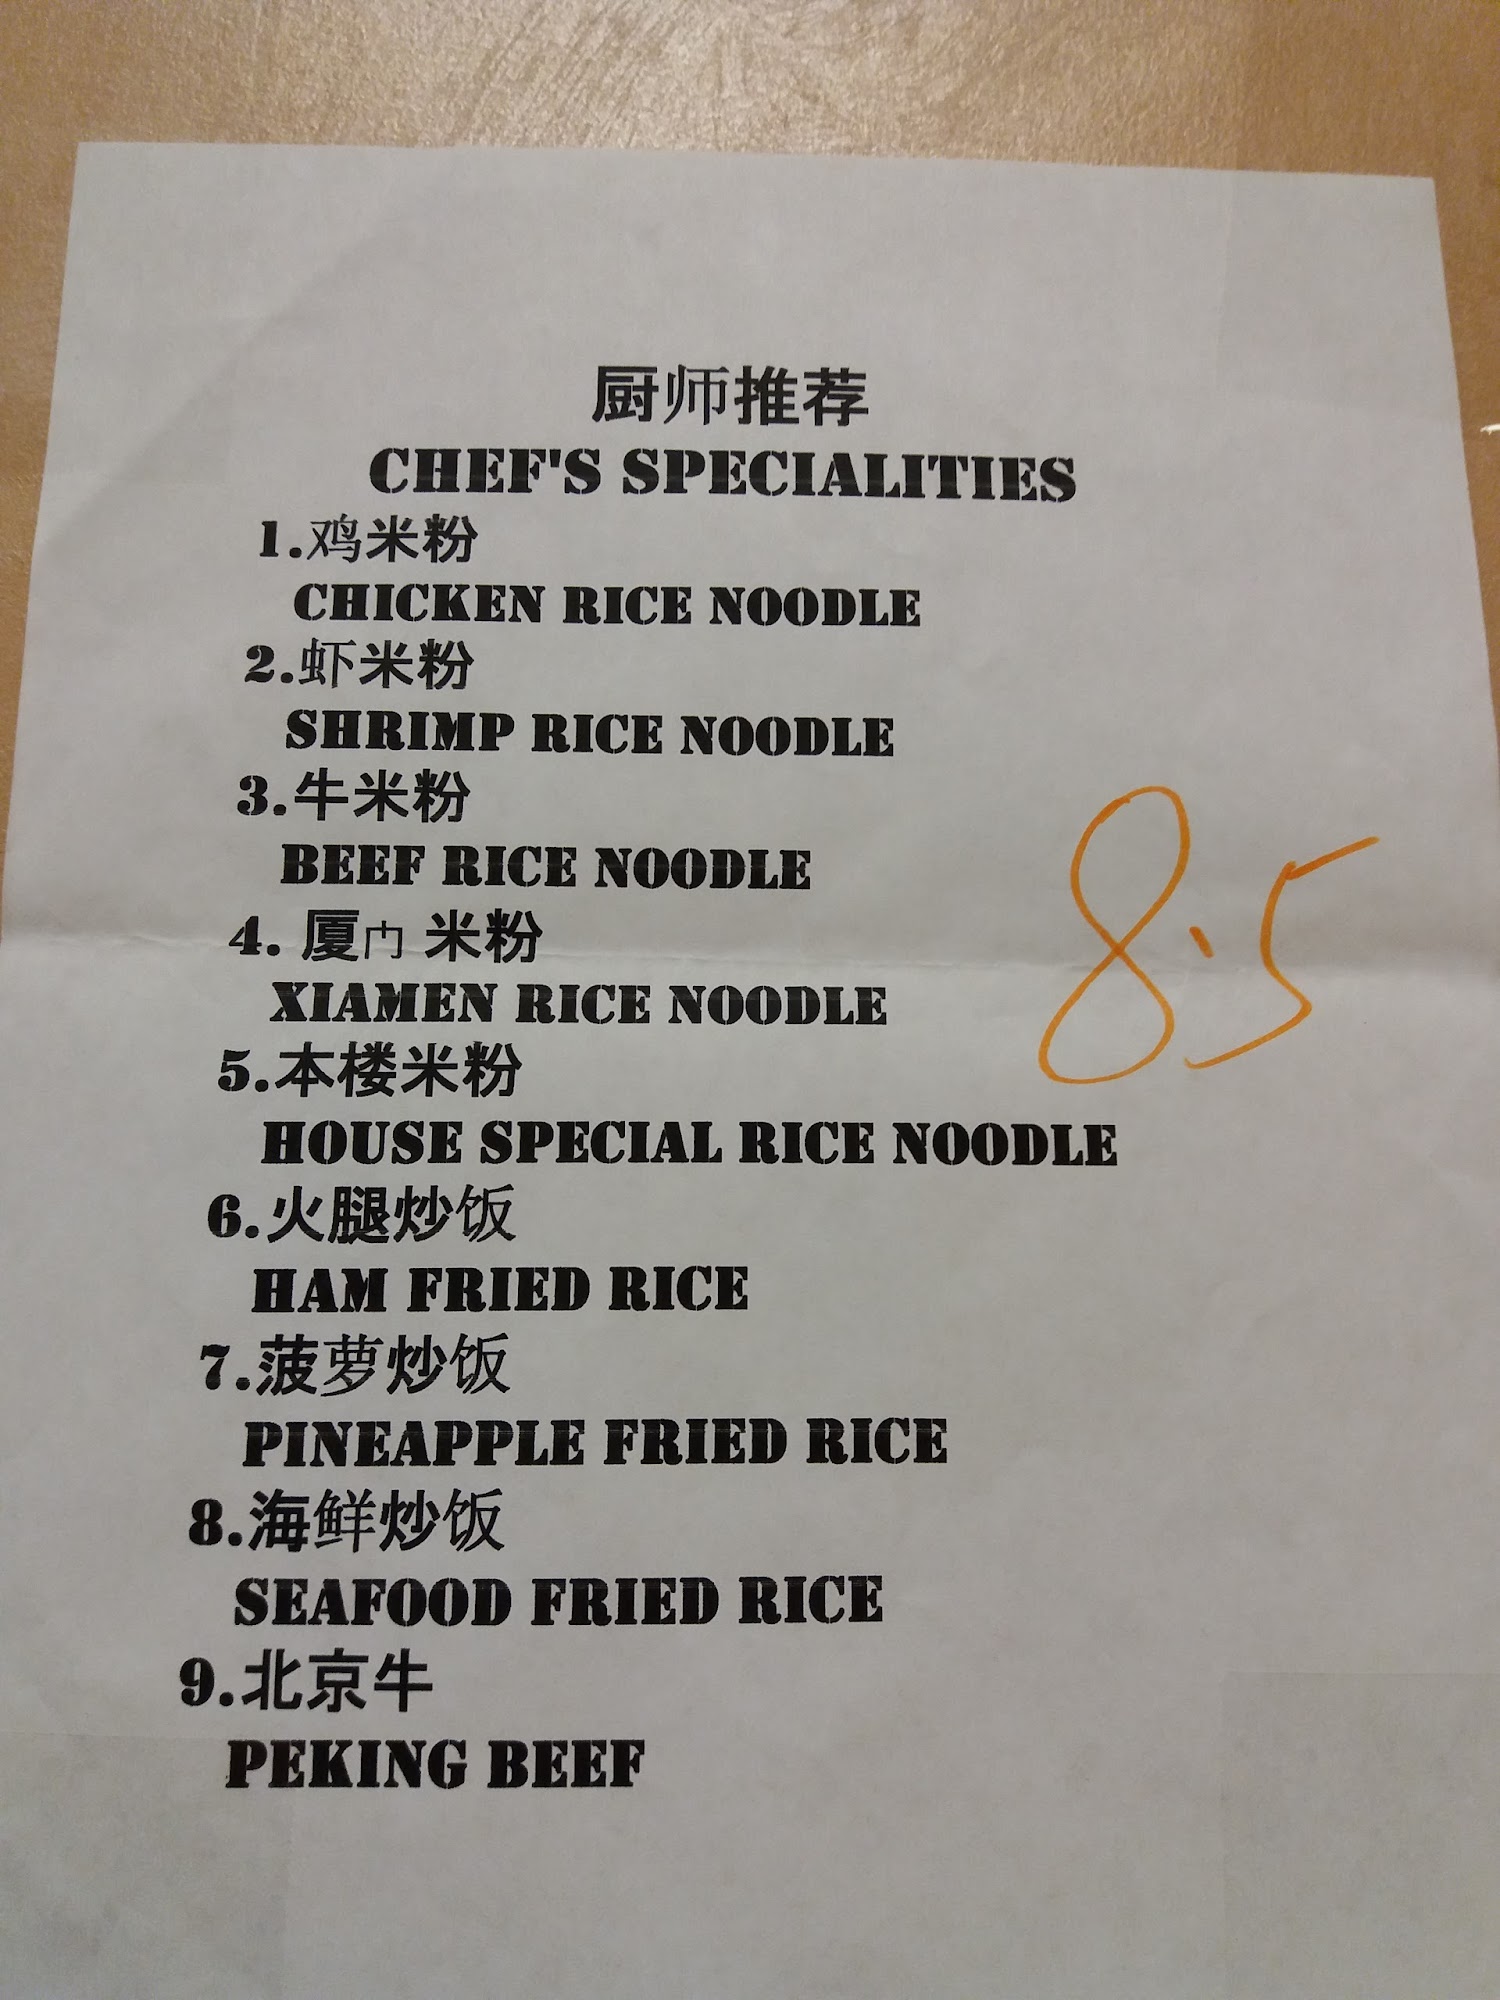 厨师推荐
CHEF'S SPECIALITIES
1.鸡米粉
CHICKEN RICE NOODLE
2.虾米粉
SHRIMP RICE NOODLE
3.牛米粉
BEEF RICE NOODLE
4. 厦门 米粉
XIAMEN RICE NOODLE
5.本楼米粉
HOUSE SPECIAL RICE NOODLE
6.火腿炒饭
HAM FRIED RICE
7.菠萝炒饭
PINEAPPLE FRIED RICE
8.海鲜炒饭
SEAFOOD FRIED RICE
9.北京牛
PEKING BEEF
8.5